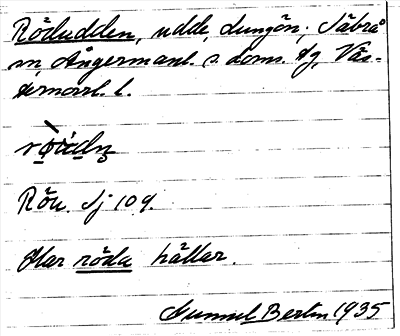 Rödudden, udde, Lungön, Säbrå
sn, Ångermanl. s. doms. dg, Väs-
ternorrl. l.
Röu. Sj 109.
Har röda hällar.
Gunnel Bertin 1935